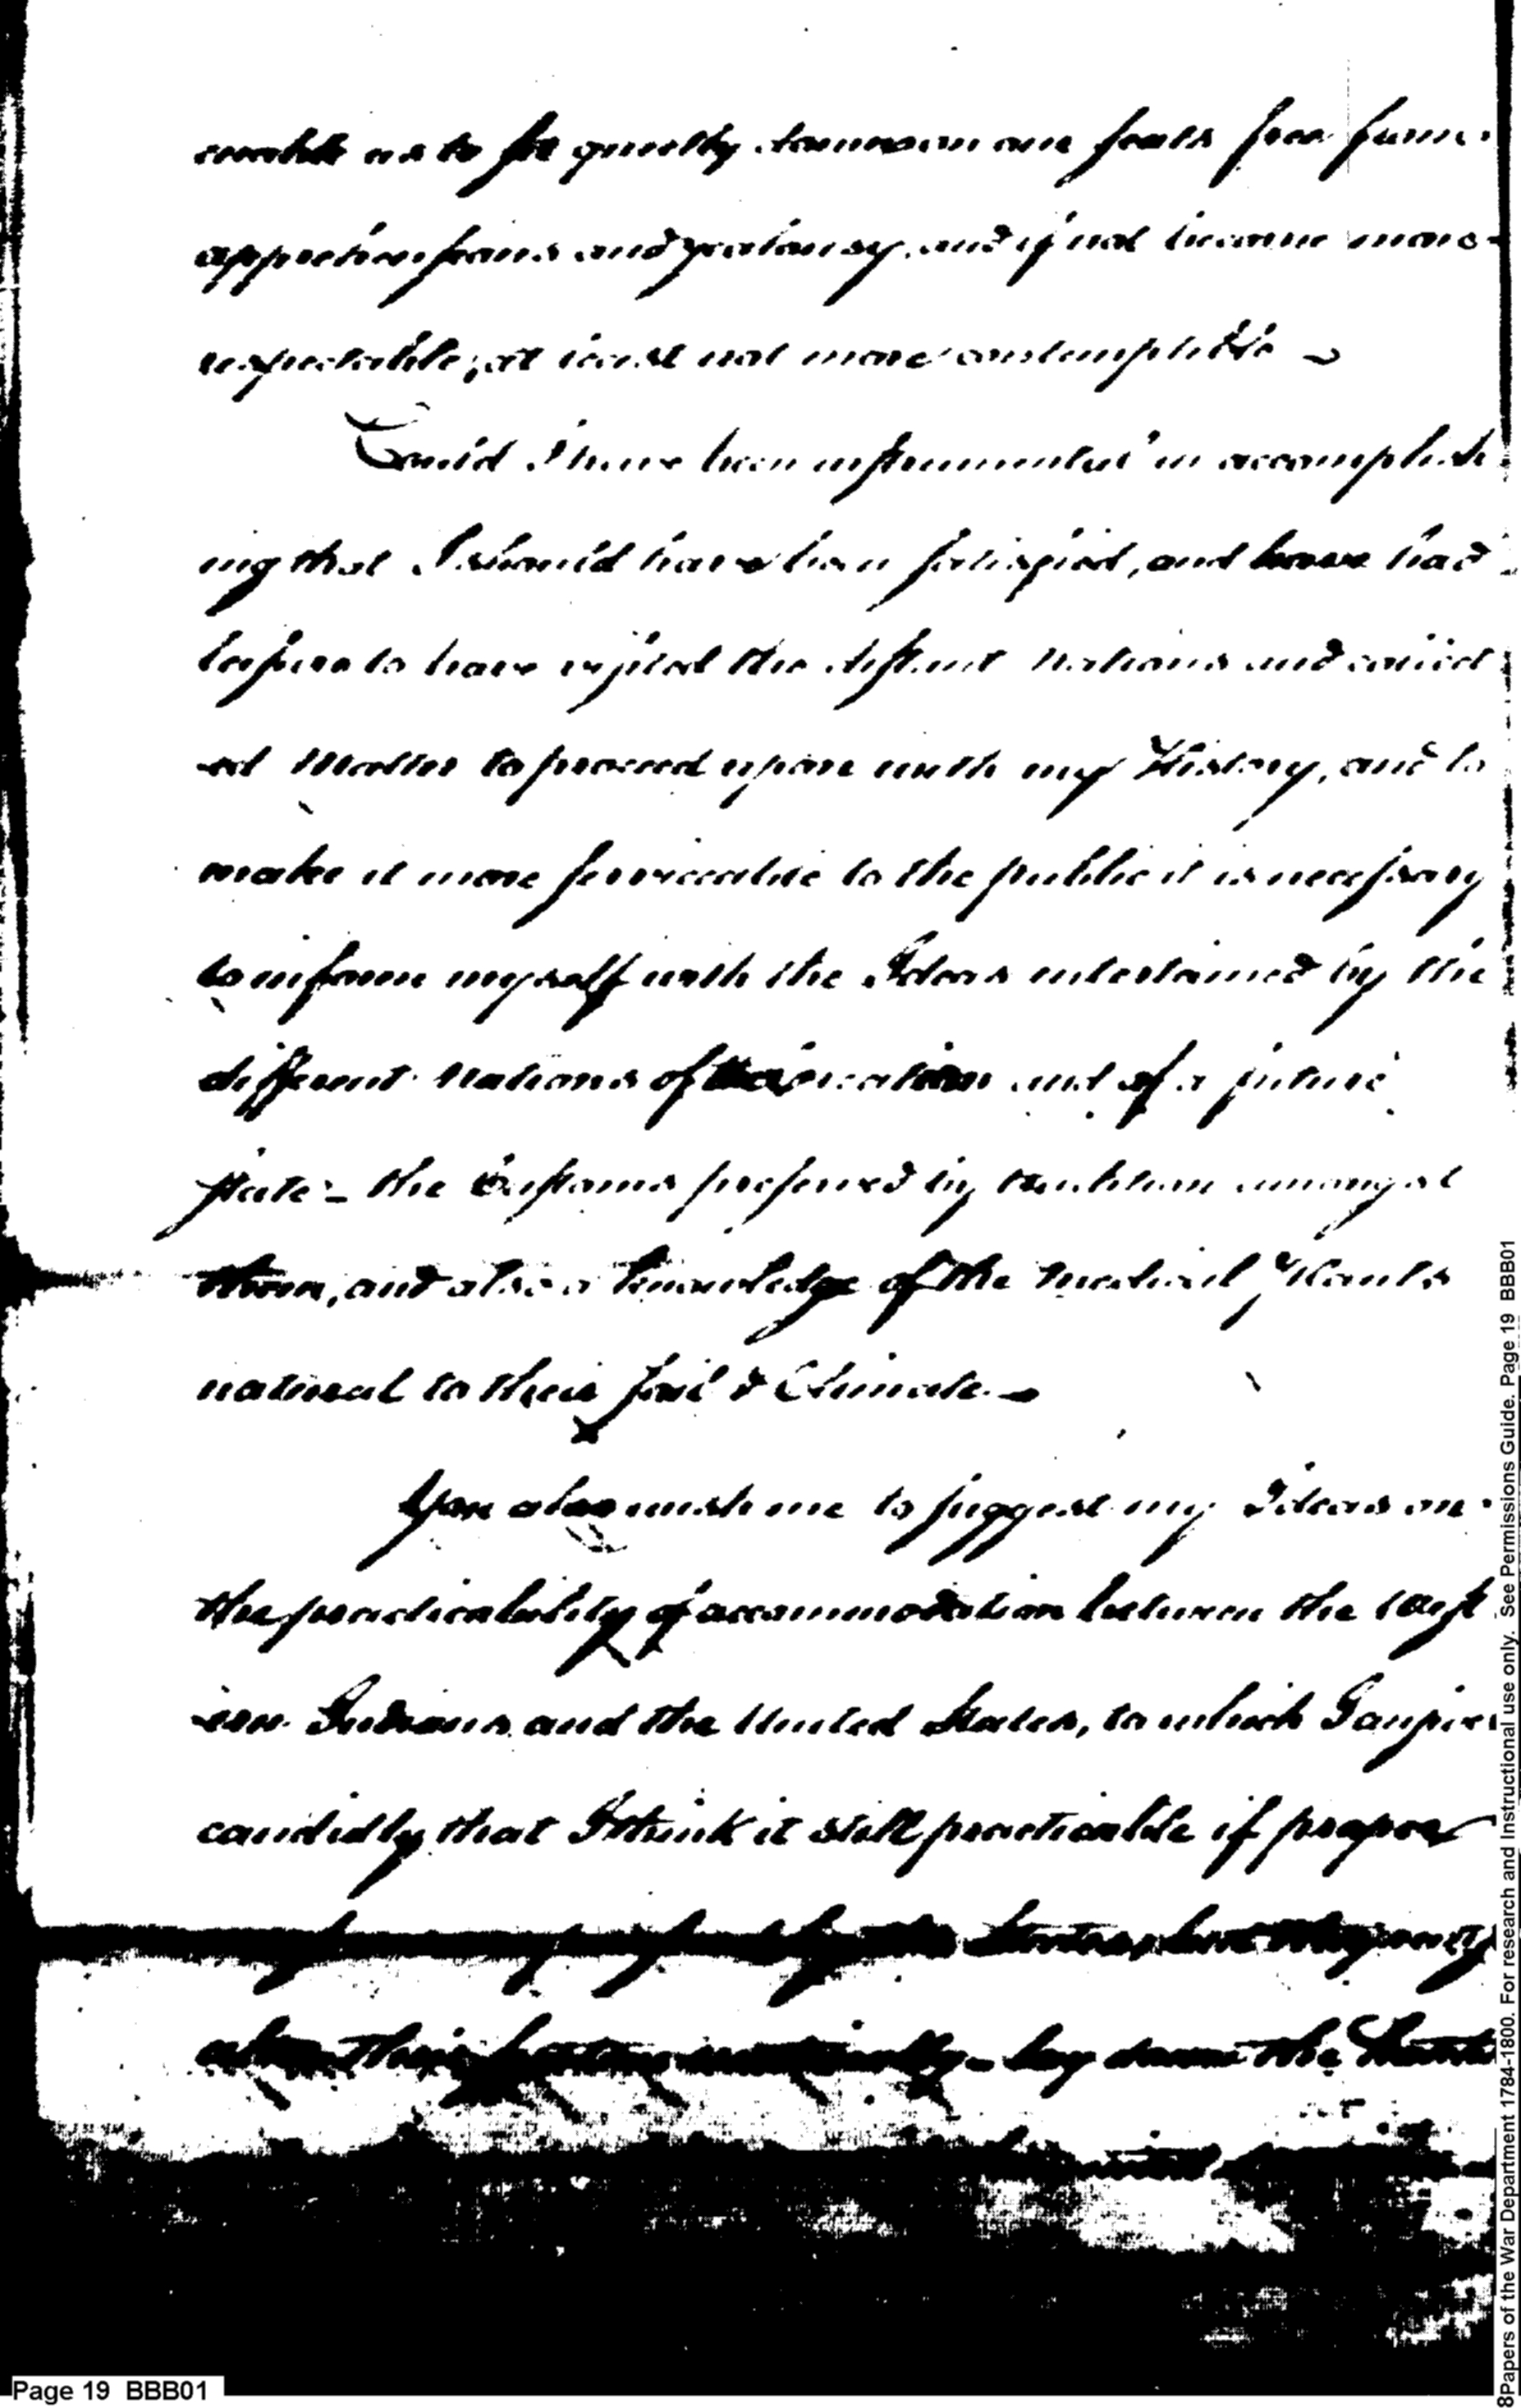 enable us to sit quietly down on our seats free from
apprehensions and jealousy, and if not become more
respectable, at least not more contemptible –
Could I have been instrumental in accomplish
ing that I should have been satisfied, and have had
leisure to have visited the distant Nations and collect
ed Matter to proceed upon with my History, and to
make it more serviceable to the public it is necessary
to inform myself with the Ideas entertained by the
different Nations of the creation and of a future
state – the Customs preserved by tradition amongst
them, and also a knowledge of the medical Plants
natural to their soil & Climate. –
You also wish me to suggest my Ideas on
the practicability of accommodation between the West
ern Indians and the United States, to which I answer
candidly that I think it still practicable if proper
by the States, but they must
alter their system – lay down the
Page 19 BBB01
8Papers of the War Department 1784-1800. For research and Instructional use only. See Permissions Guide. Page 19 BBB01